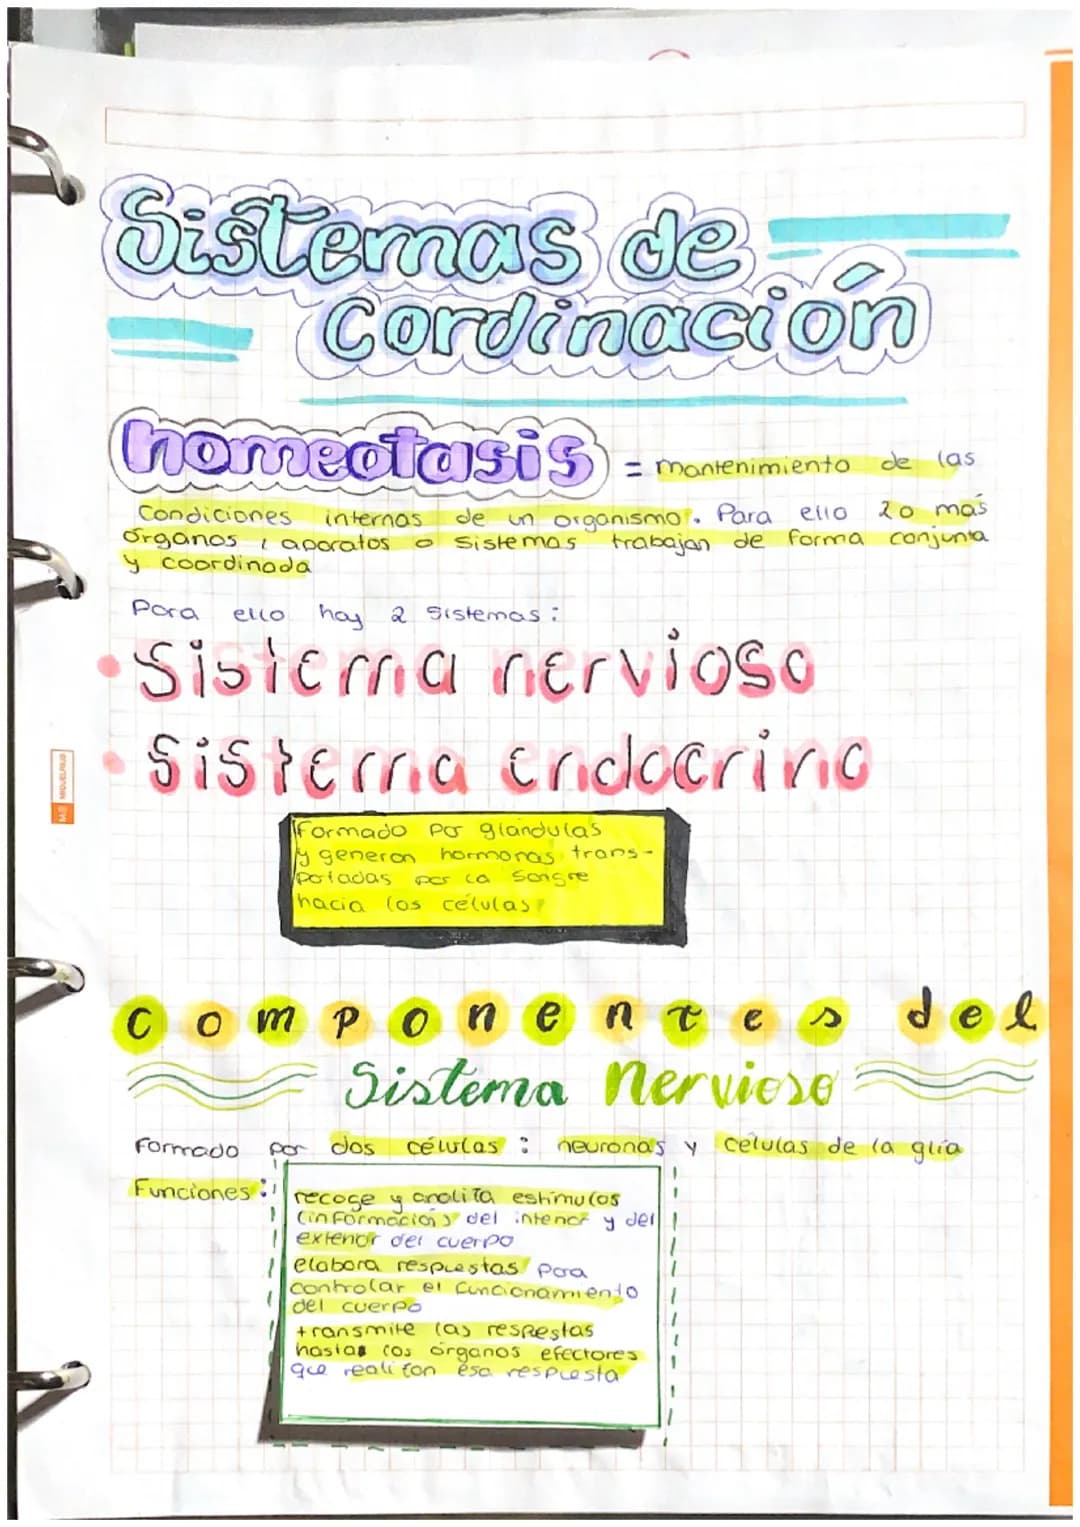 Sistemas de
Cordinación
homeotasis = mantenimiento de las
Condiciones internas de un organismo. Para ello 2 o más
órganos, aparatos o sistemas trabajan de forma conjunta
y coordinada
Para ello hay 2 sistemas:
• Sistema nervioso
• Sistema endocrino
Formado por glándulas
y generan hormonas trans-
potadas por la Sangre
hacia las células
MIQUELRIUS
Componentes del
Sistema Nervioso
Formado por dos células: neuronas y células de la glía
Funciones:
recoge y analiza estímulos
(información) del interior y del
exterior del cuerpo
elabora respuestas para
controlar el funcionamiento
del cuerpo
transmite las respestas
hasta los órganos efectores
que realizan esa respuesta